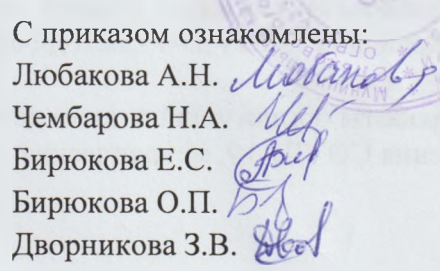 С приказом ознакомлены:
Любакова А.Н.
Чембарова Н.А.
Бирюкова Е.С.
Бирюкова О.П.
Дворникова З.В.